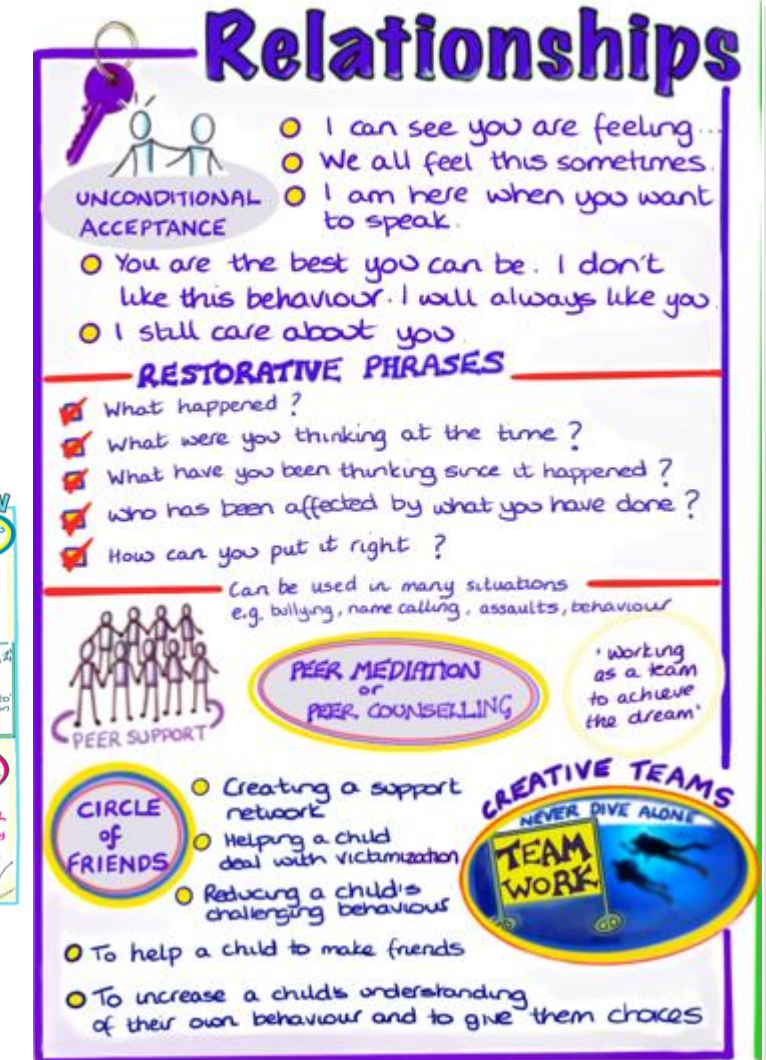 Relationships
UNCONDITIONAL
ACCEPTANCE
I can see you are feeling...
We all feel this sometimes.
I am here when you want
to speak.
You are the best you can be. I don't
like this behaviour. I will always like you.
I still care about you
RESTORATIVE PHRASES
What happened?
What were you thinking at the time?
What have you been thinking since it happened?
Who has been affected by what you have done?
How can you put it right?
Can be used in many situations
e.g. bullying, name calling, assaults, behaviour
PEER SUPPORT
PEER MEDIATION
or
PEER COUNSELLING
'Working
as a team
to achieve
the dream'
CIRCLE
of
FRIENDS
Creating a support
network
Helping a child
deal with victimization
Reducing a child's
challenging behaviour
To help a child to make friends
To increase a child's understanding
of their own behaviour and to give them choices
CREATIVE TEAMS
NEVER DIVE ALONE
TEAM
WORK
GO
GO